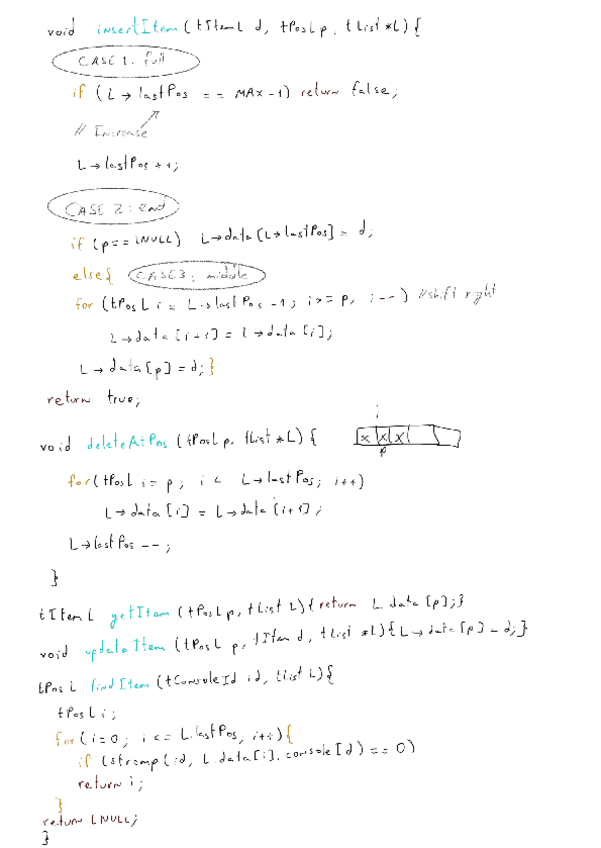 void insertItem (tItemL d, tPosL p, tList *L) {
CASE 1: full
if (L → lastPos == MAX -1) return false;
// Increase
L → lastPos ++;
CASE 2: end
if (p == LNULL) L→data [L→lastPos] = d;
else { CASE 3: middle
for (tPosL i = L→lastPos -1; i >= p, i--) //shift right
L→data [i+1] = L→data [i];
L → data [p] = d; }
return true;
i
void deleteAtPos (tPosL p, tList *L) {
x x x
p
for (tPosL i = p; i < L→lastPos; i++)
L→data [i] = L→data [i+1];
L→lastPos --;
}
tItemL getItem (tPosL p, tList L) { return L.data [p]; }
void updateItem (tPosL p, tItem d, tList *L) { L → data [p] = d; }
tPosL findItem (tConsoleId id, tList L) {
tPosL i;
for (i=0; i <= L.lastPos; i++) {
if (strcmp (id, L.data [i].consoleId) == 0)
return i;
}
return LNULL;
}